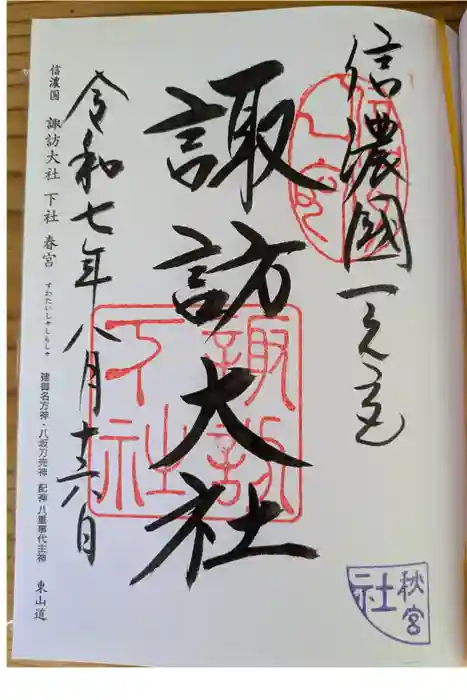 信濃國一之宮
諏訪大社
令和七年八月十六日
諏訪
下社
秋宮
社
信濃国 諏訪大社 下社 春宮 すわたいしゃしもしゃ 建御名方神・八坂刀売神 配神 八重事代主神 東山道